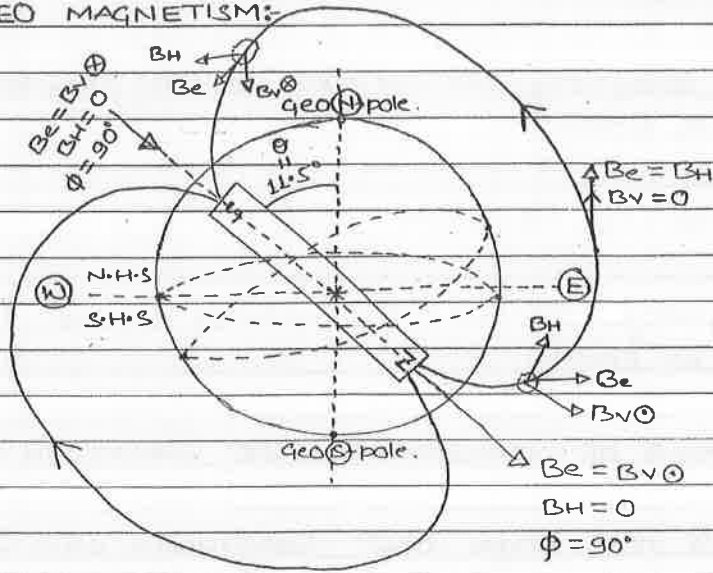 EO MAGNETISM:-
BH
Be
BV⊗
Be=BV⊕
BH=0
Φ=90°
Geo Ⓝ pole.
θ
=
11.5°
Be=BH
BV=0
Ⓦ
N.H.S
S.H.S
Ⓔ
N
BH
Be
BV⊙
Geo Ⓢ pole.
Be=BV⊙
BH=0
Φ=90°